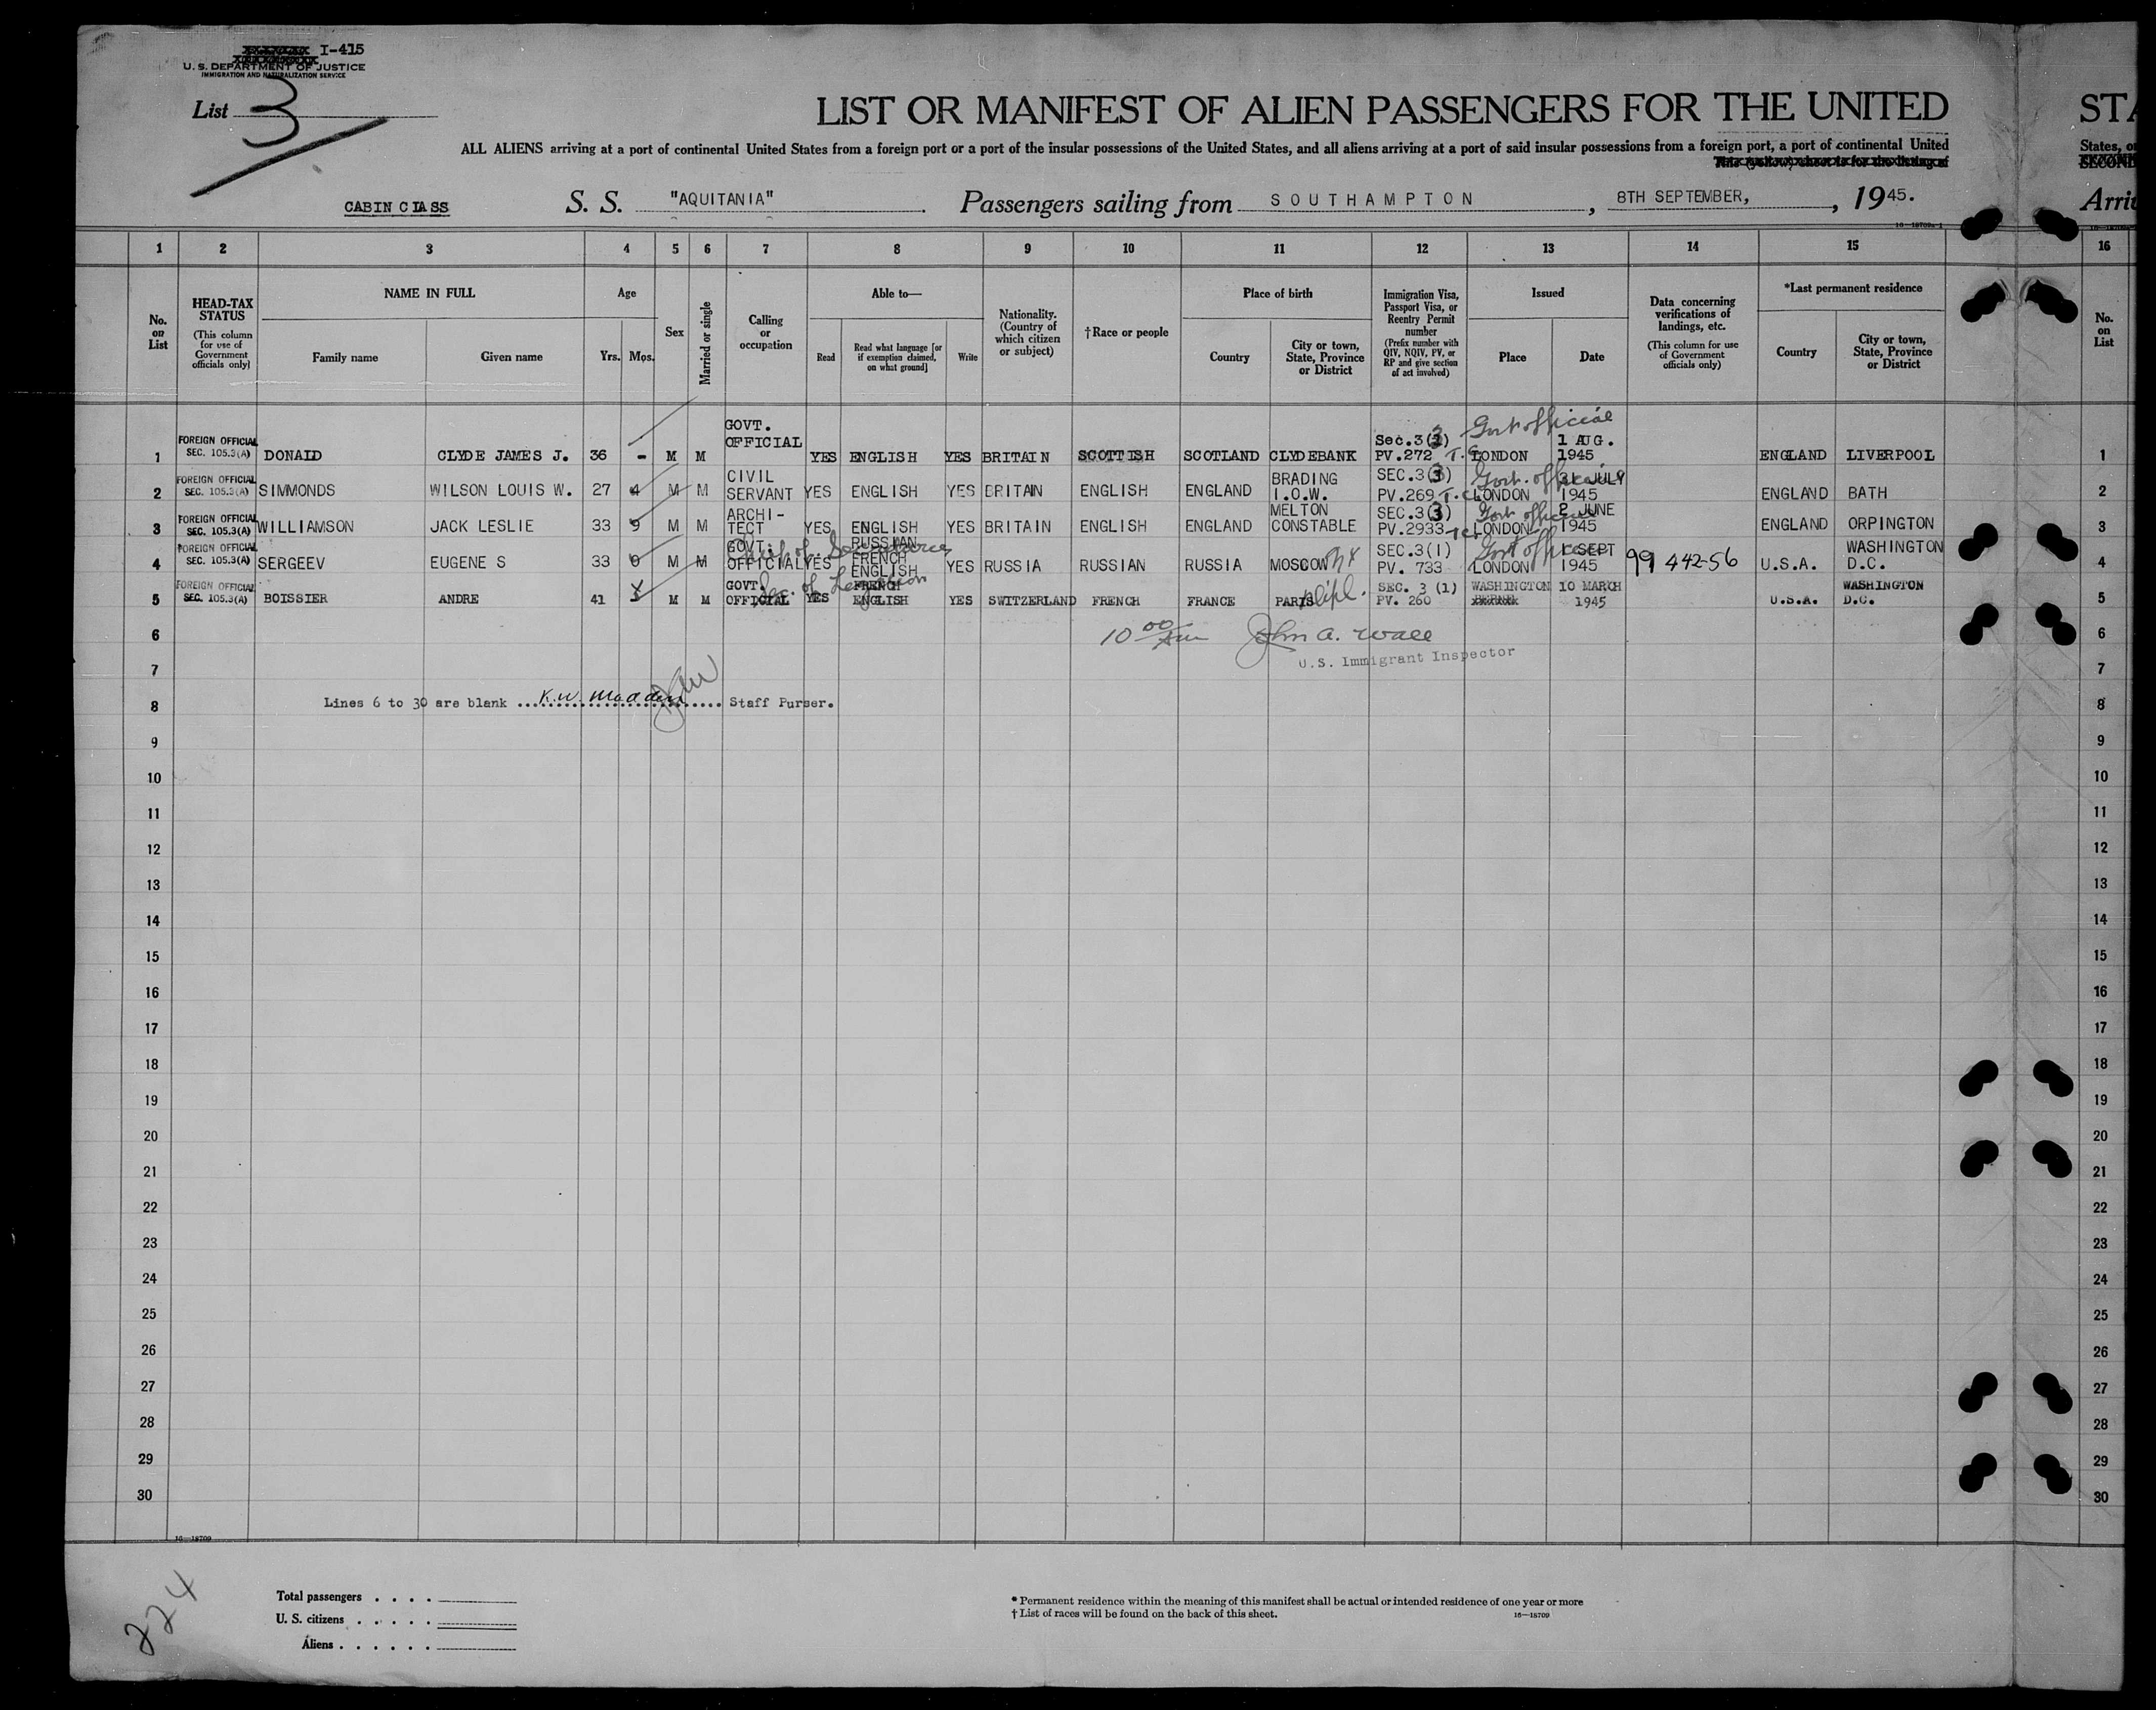 I-415
U. S. DEPARTMENT OF JUSTICE
IMMIGRATION AND NATURALIZATION SERVICE
List 3
LIST OR MANIFEST OF ALIEN PASSENGERS FOR THE UNITED STA
ALL ALIENS arriving at a port of continental United States from a foreign port or a port of the insular possessions of the United States, and all aliens arriving at a port of said insular possessions from a foreign port, a port of continental United States, o
CABIN CLASS S. S. "AQUITANIA" Passengers sailing from SOUTHAMPTON, 8TH SEPTEMBER, 1945. Arri
16—18709a-1
1 2 3 4 5 6 7 8 9 10 11 12 13 14 15 16
No. on List
HEAD-TAX STATUS (This column for use of Government officials only)
NAME IN FULL Family name Given name
Age Yrs. Mos.
Sex
Married or single
Calling or occupation
Able to— Read Read what language [or if exemption claimed, on what ground] Write
Nationality. (Country of which citizen or subject)
†Race or people
Place of birth Country City or town, State, Province or District
Immigration Visa, Passport Visa, or Reentry Permit number (Prefix number with QIV, NQIV, PV, or RP and give section of act involved)
Issued Place Date
Data concerning verifications of landings, etc. (This column for use of Government officials only)
*Last permanent residence Country City or town, State, Province or District
No. on List
1 FOREIGN OFFICIAL SEC. 105.3(A) DONALD CLYDE JAMES J. 36 - M M GOVT. OFFICIAL YES ENGLISH YES BRITAIN SCOTTISH SCOTLAND CLYDEBANK Sec.3(3) PV.272 T.C. Govt official LONDON 1 AUG. 1945 ENGLAND LIVERPOOL 1
2 FOREIGN OFFICIAL SEC. 105.3(A) SIMMONDS WILSON LOUIS W. 27 4 M M CIVIL SERVANT YES ENGLISH YES BRITAIN ENGLISH ENGLAND BRADING I.O.W. SEC.3(3) PV.269 T.C. Govt. official LONDON 31 JULY 1945 ENGLAND BATH 2
3 FOREIGN OFFICIAL SEC. 105.3(A) WILLIAMSON JACK LESLIE 33 9 M M ARCHI-TECT YES ENGLISH YES BRITAIN ENGLISH ENGLAND MELTON CONSTABLE SEC.3(3) PV.2933 T.C. Govt official LONDON 2 JUNE 1945 ENGLAND ORPINGTON 3
4 FOREIGN OFFICIAL SEC. 105.3(A) SERGEEV EUGENE S 33 0 M M GOVT. OFFICIAL YES RUSSIAN FRENCH ENGLISH YES RUSSIA RUSSIAN RUSSIA MOSCOW SEC.3(1) PV. 733 Govt official LONDON 1 SEPT 1945 99 442-56 U.S.A. WASHINGTON D.C. 4
5 FOREIGN OFFICIAL SEC. 105.3(A) BOISSIER ANDRE 41 M M GOVT. OFFICIAL Sec. of Legation YES FRENCH ENGLISH YES SWITZERLAND FRENCH FRANCE PARIS dipl. SEC. 3 (1) PV. 260 WASHINGTON 10 MARCH 1945 U.S.A. WASHINGTON D.C. 5
6 10 00 am John A. Wall 6
7 U.S. Immigrant Inspector 7
8 Lines 6 to 30 are blank K.W. Madden Staff Purser. 8
9 9
10 10
11 11
12 12
13 13
14 14
15 15
16 16
17 17
18 18
19 19
20 20
21 21
22 22
23 23
24 24
25 25
26 26
27 27
28 28
29 29
30 30
16—18709
224
Total passengers . . . .
U. S. citizens . . . . .
Aliens . . . . . .
* Permanent residence within the meaning of this manifest shall be actual or intended residence of one year or more
† List of races will be found on the back of this sheet. 16—18709